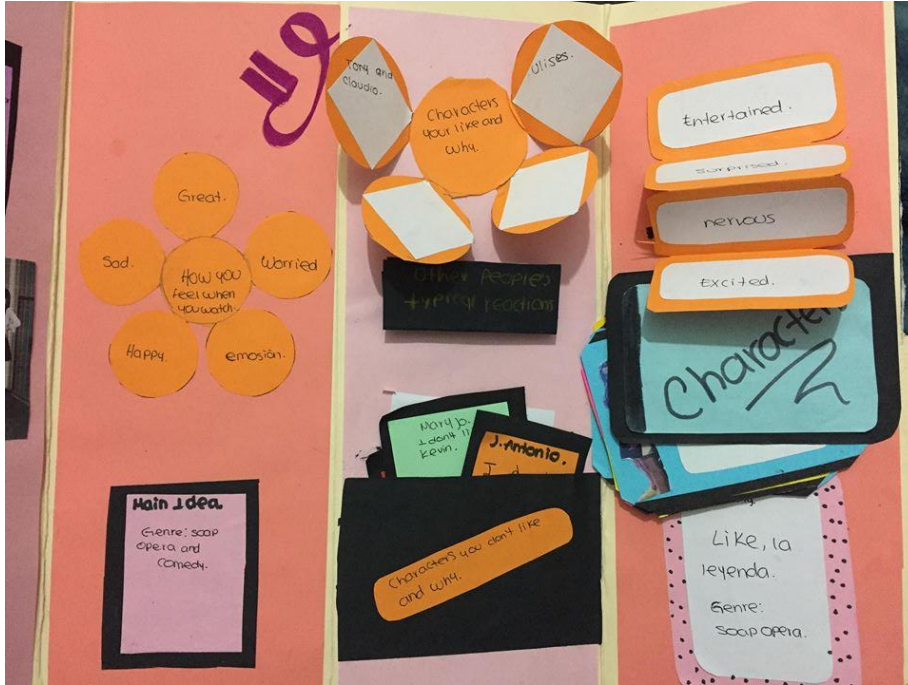 Great.
Sad.
Worried
HOW YOU
feel when
you watch.
Happy.
emosión.
Main Idea
Genre: soap
opera and
comedy.
Tora and
Claudio.
Ulises.
Characters
your like and
why.
Other people's
typical reactions
Mary Jo.
I don't li
Kevin.
J. Antonio.
Characters you don't like
and why.
Entertained.
surprised.
nervous
Excited.
Character
Like, la
leyenda.
Genre:
soap opera.